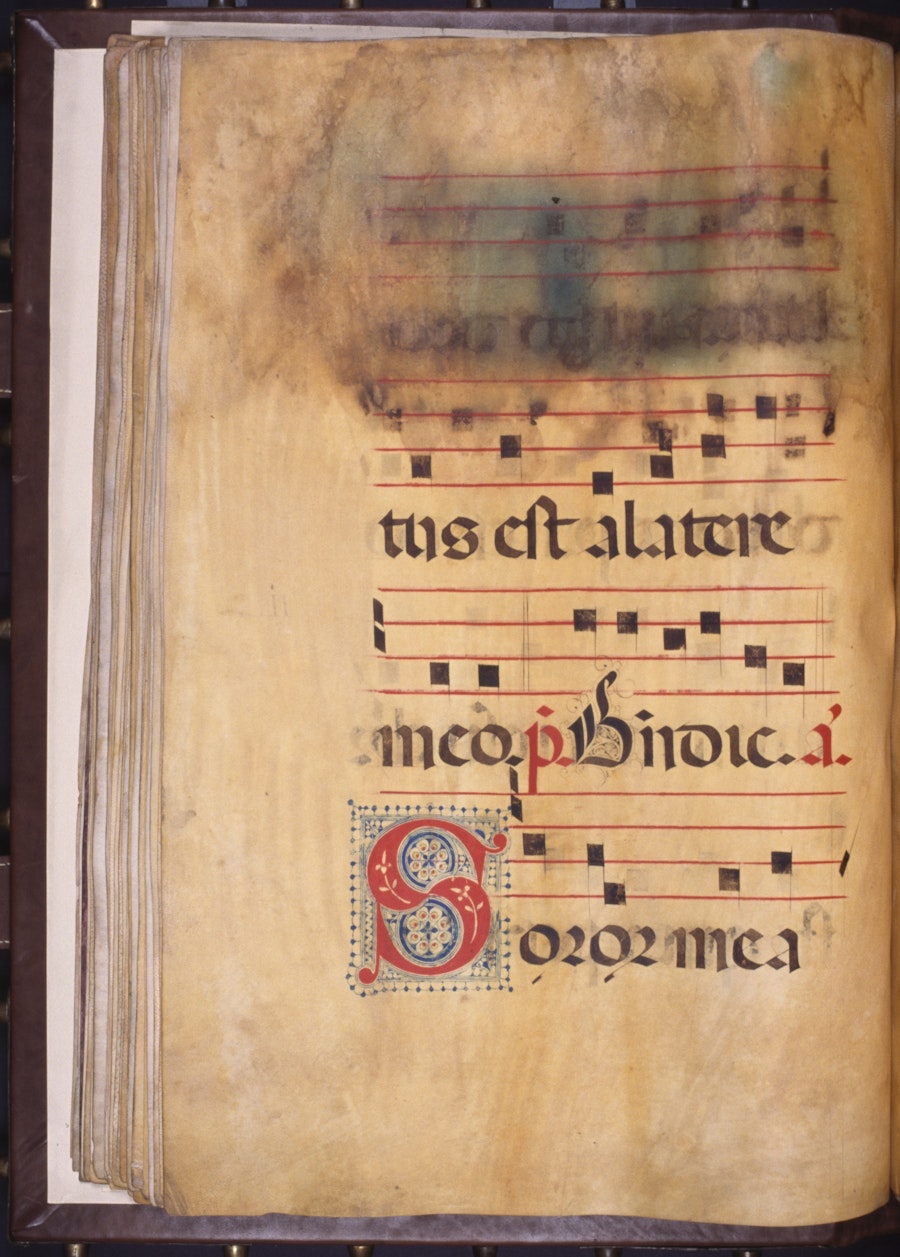 tus est a latere
meo. p̄. Bindic. a̅.
Soror mea